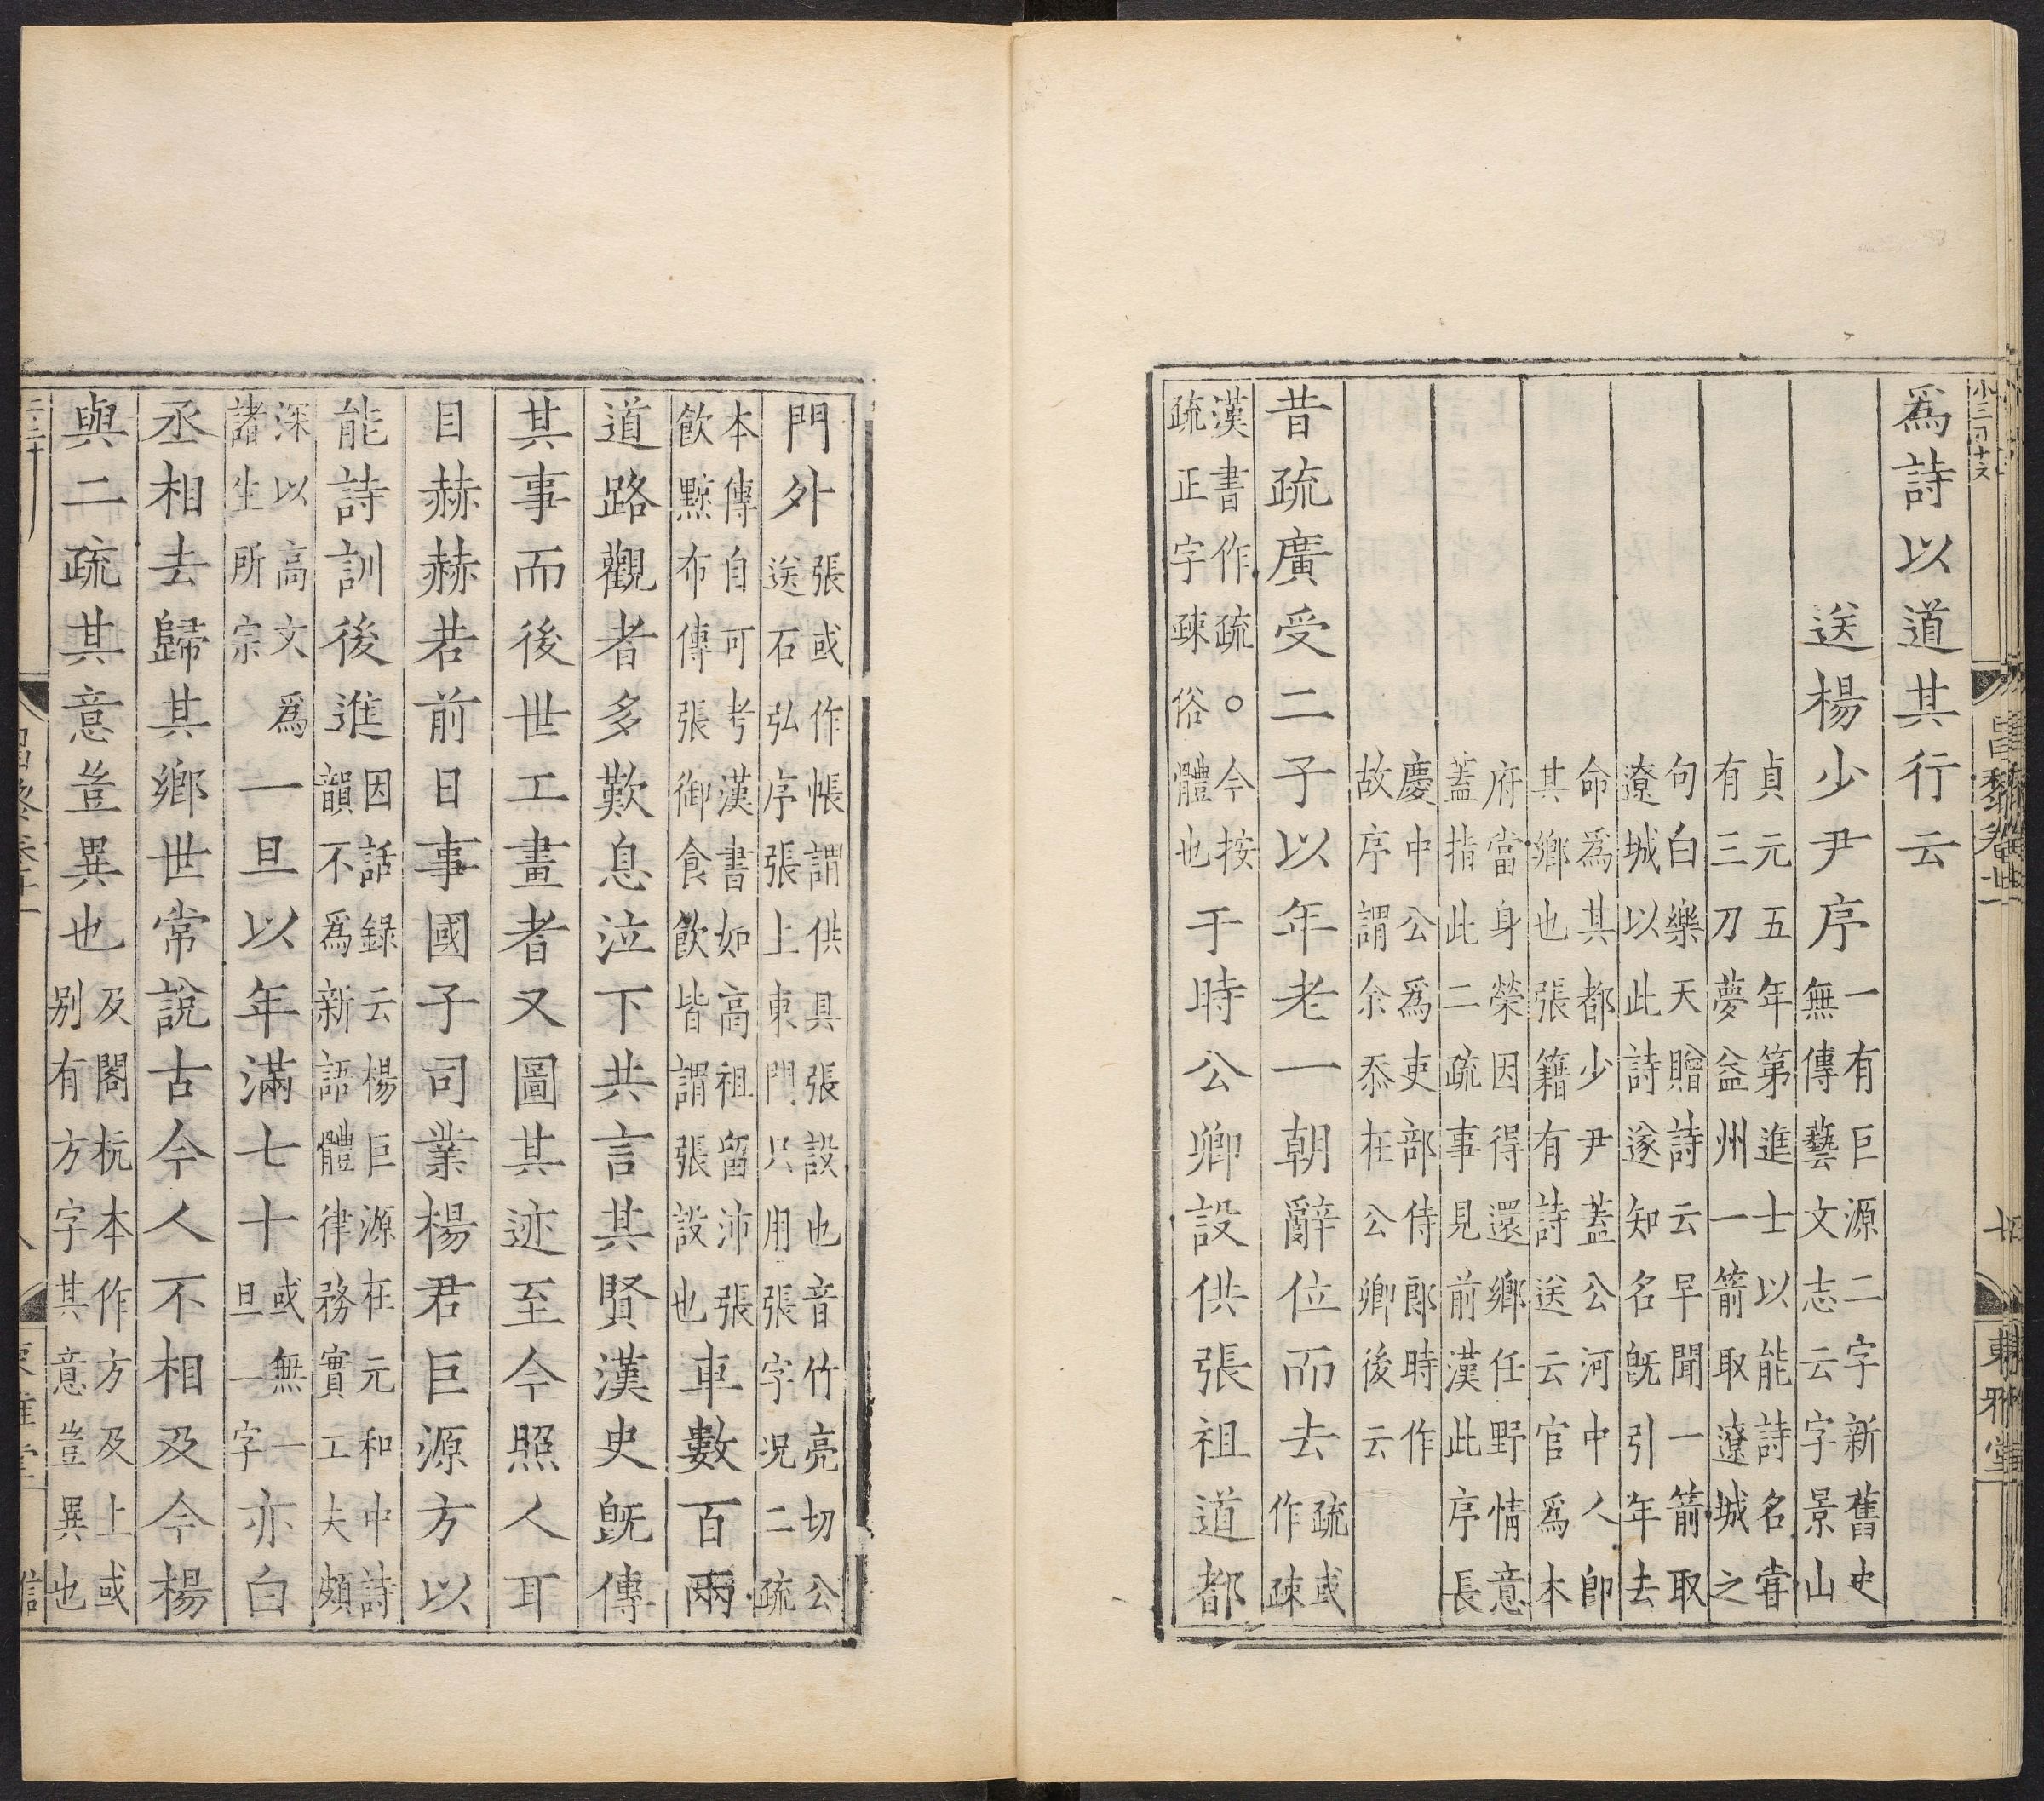 爲詩以道其行云
送楊少尹序
一有巨源二字新舊史
無傳藝文志云字景山
貞元五年第進士以能詩名甞
有三刀夢益州一箭取遼城之
句白樂天贈詩云早聞一箭取
遼城以此詩遂知名旣引年去
命爲其都少尹蓋公河中人卽
其鄉也張籍有詩送云官爲本
府當身榮因得還鄉任野情意
蓋指此二疏事見前漢此序長
慶中公爲吏部侍郎時作
故序謂余忝在公卿後云
昔疏廣受二子以年老一朝辭位而去
疏或
作疎
漢書作疏○今按
疏正字疎俗體也
于時公卿設供張祖道都
門外
張或作帳謂供具張設也音竹亮切公
送石弘序張上東門只用張字況二疏
本傳自可考漢書如高祖留沛張
飲黥布傳張御食飲皆謂張設也
車數百兩
道路觀者多歎息泣下共言其賢漢史旣傳
其事而後世工畫者又圖其迹至今照人耳
目赫赫若前日事國子司業楊君巨源方以
能詩訓後進
因話録云楊巨源在元和中詩
韻不爲新語體律務實工夫頗
深以高文爲
諸生所宗
一旦以年滿七十
或無一
旦一字
亦白
丞相去歸其鄉世常說古今人不相及今楊
與二疏其意豈異也
及閣杭本作方及上或
别有方字其意豈異也
東雅堂